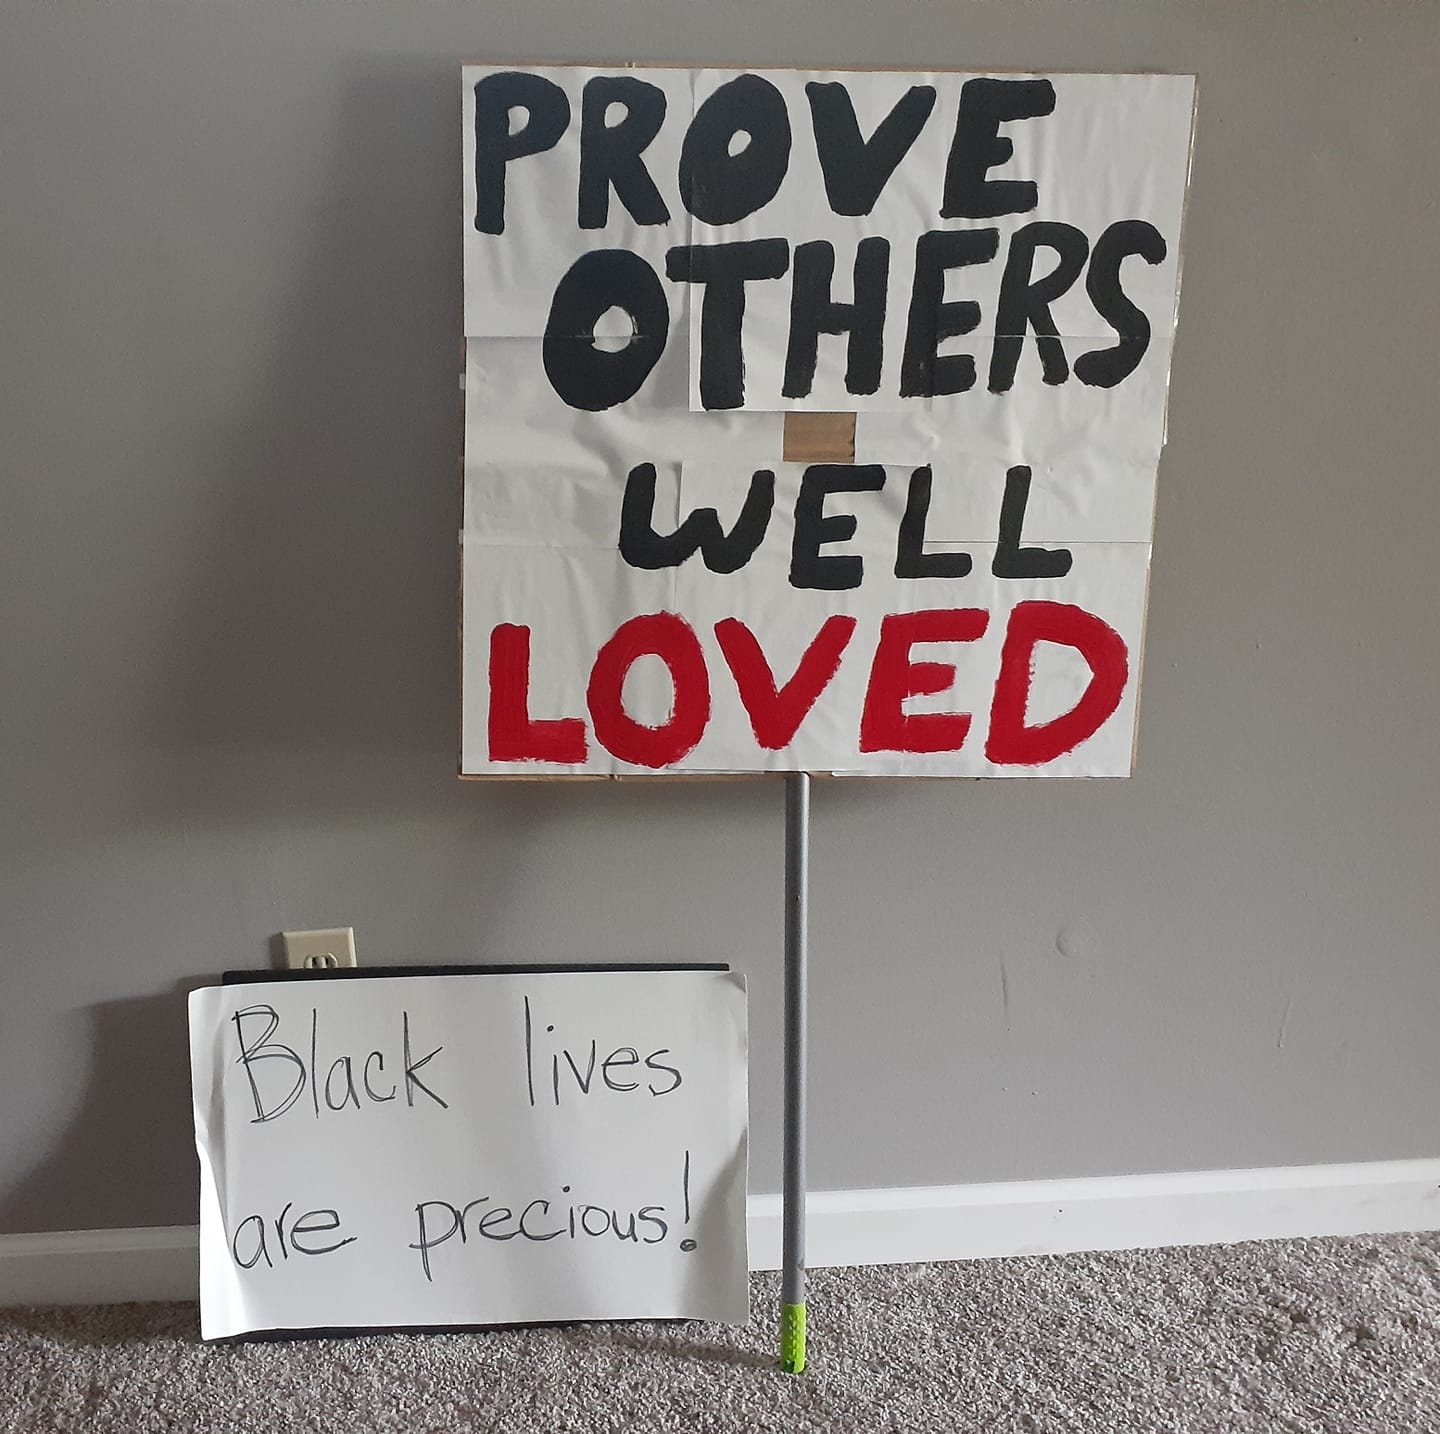 PROVE
OTHERS
WELL
LOVED
Black lives
are precious!